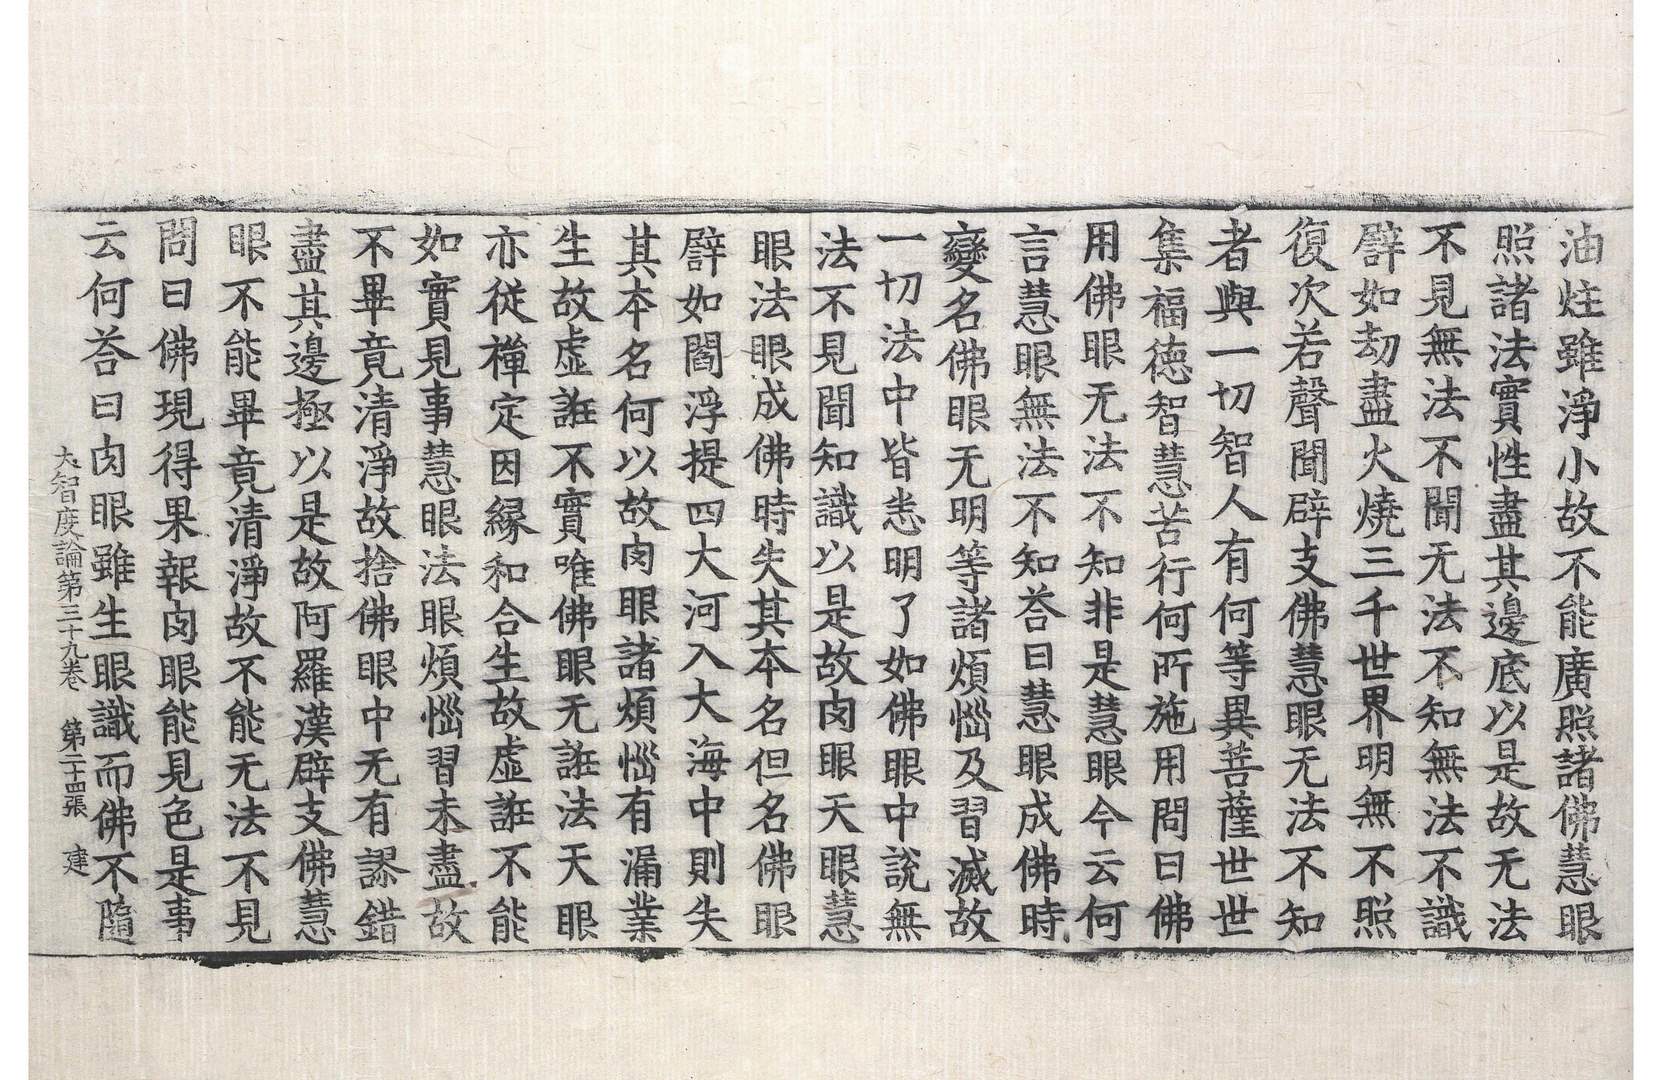 油炷雖淨小故不能廣照諸佛慧眼
照諸法實性盡其邊底以是故无法
不見無法不聞无法不知無法不識
譬如劫盡火燒三千世界明無不照
復次若聲聞辟支佛慧眼无法不知
者與一切智人有何等異菩薩世世
集福德智慧苦行何所施用問曰佛
用佛眼无法不知非是慧眼今云何
言慧眼無法不知荅曰慧眼成佛時
變名佛眼无明等諸煩惱及習滅故
一切法中皆悉明了如佛眼中說無
法不見聞知識以是故肉眼天眼慧
眼法眼成佛時失其本名但名佛眼
譬如閻浮提四大河入大海中則失
其本名何以故肉眼諸煩惱有漏業
生故虛誑不實唯佛眼无誑法天眼
亦從禪定因緣和合生故虛誑不能
如實見事慧眼法眼煩惱習未盡故
不畢竟清淨故捨佛眼中无有謬錯
盡其邊極以是故阿羅漢辟支佛慧
眼不能畢竟清淨故不能无法不見
問曰佛現得果報肉眼能見色是事
云何荅曰肉眼雖生眼識而佛不隨
大智度論第三十九卷 第二十四張 建